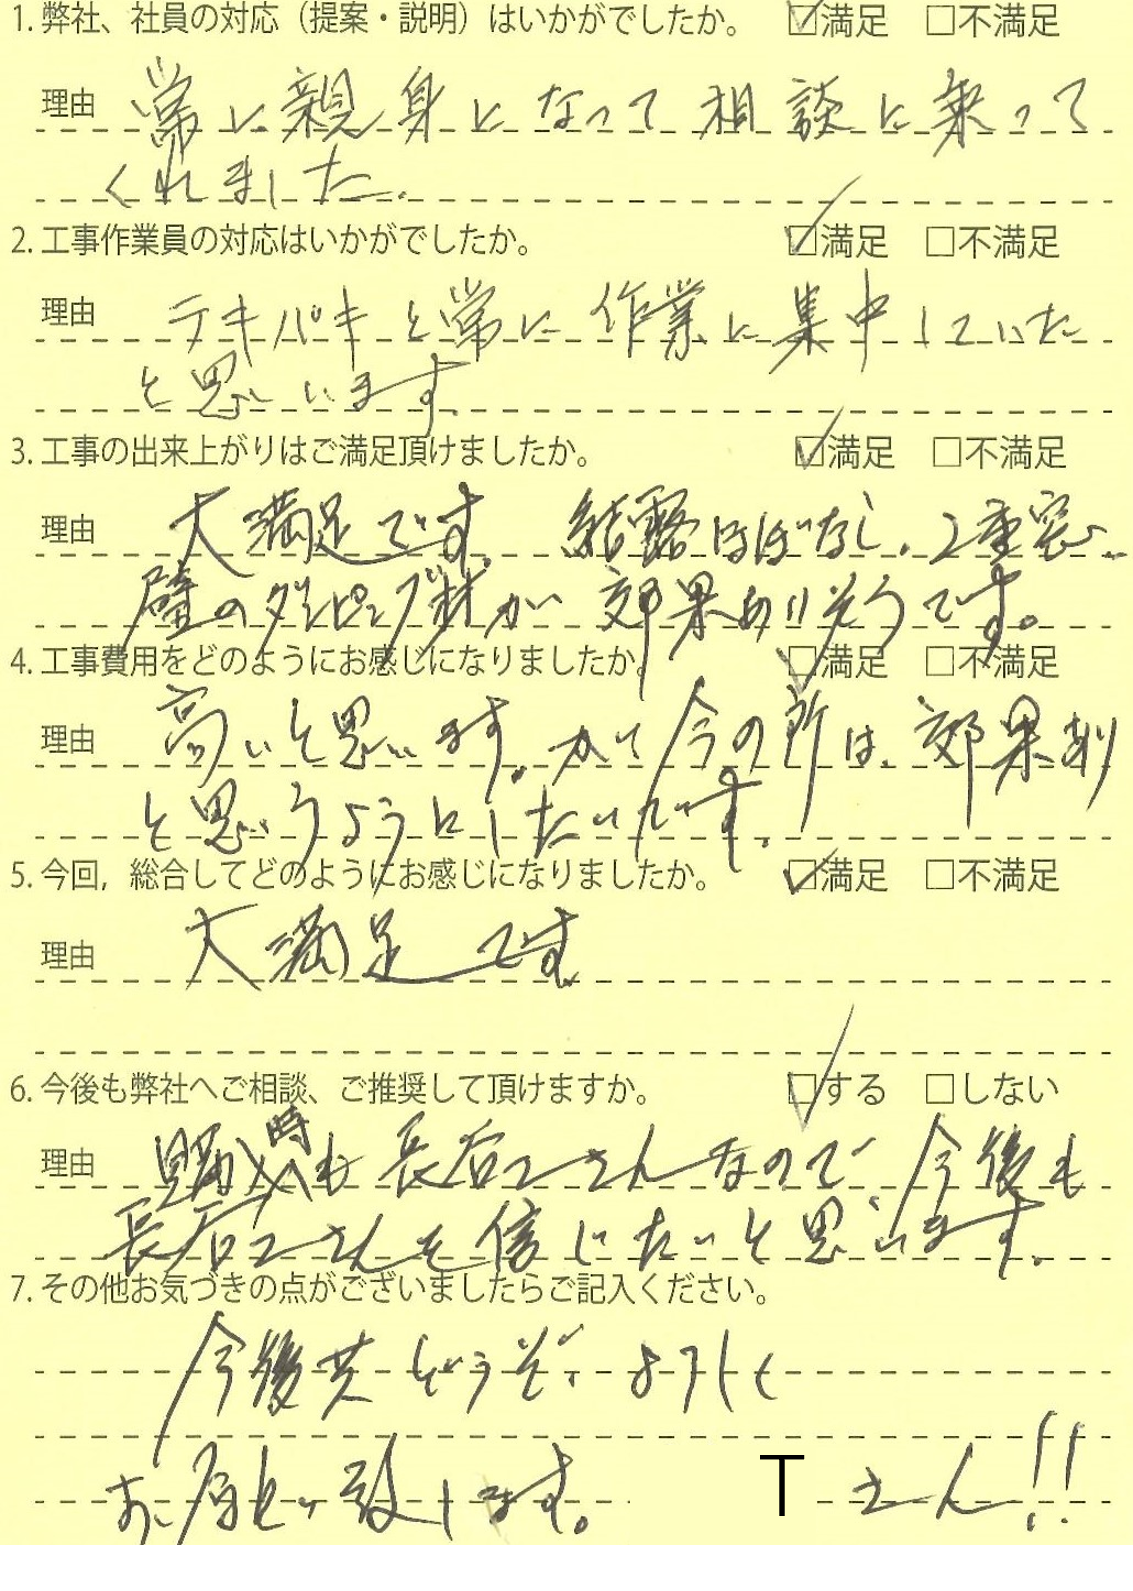 1. 弊社、社員の対応（提案・説明）はいかがでしたか。 ☑満足 □不満足
理由 常に親身になって相談に乗って
くれました。
2. 工事作業員の対応はいかがでしたか。 ☑満足 □不満足
理由 テキパキと常に作業に集中していた
と思います。
3. 工事の出来上がりはご満足頂けましたか。 ☑満足 □不満足
理由 大満足です。結露はほぼなし、2重窓、
壁のダンピング材が効果ありそうです。
4. 工事費用をどのようにお感じになりましたか。 ☑満足 □不満足
理由 高いと思います。が、今の所は、効果あり
と思うようにしたいです。
5. 今回，総合してどのようにお感じになりましたか。 ☑満足 □不満足
理由 大満足です
6. 今後も弊社へご相談、ご推奨して頂けますか。 ☑する □しない
理由 購入時も長谷工さんなので、今後も
長谷工さんを信じたいと思います。
7. その他お気づきの点がございましたらご記入ください。
今後共どうぞ、よろしく
お願い致します。 Tさん!!